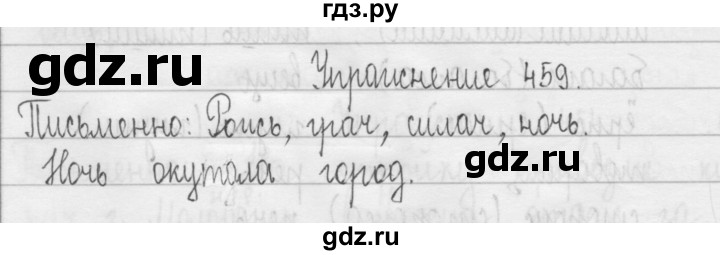 гдз.ру
gdz.ru
Упражнение 459.
Письменно: Рысь, грач, силач, ночь.
gdz.ru
Ночь окутала город.
gdz.ru